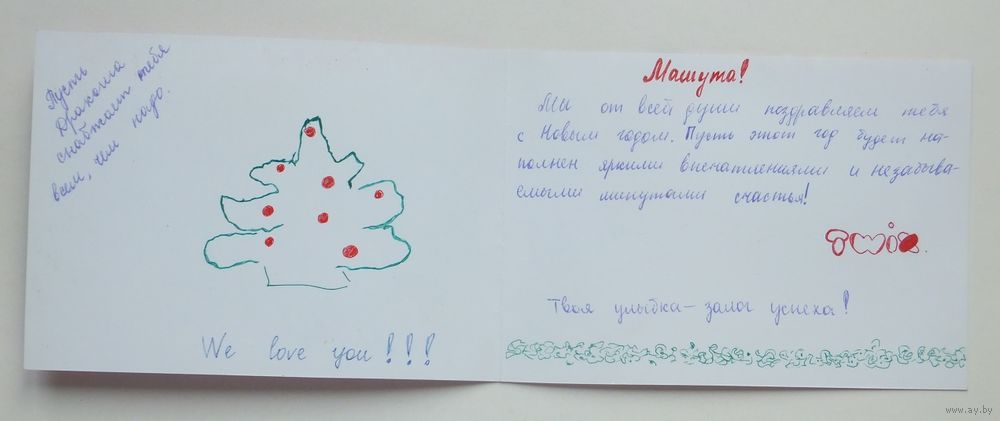 Пусть
Дракоша
снабжает тебя
всем, чем надо.
We love you!!!
Машута!
Мы от всей души поздравляем тебя
с Новым годом. Пусть этот год будет на-
полнен яркими впечатлениями и незабыва-
емыми минутами счастья!
Twix.
Твоя улыбка – залог успеха!
www.ay.by